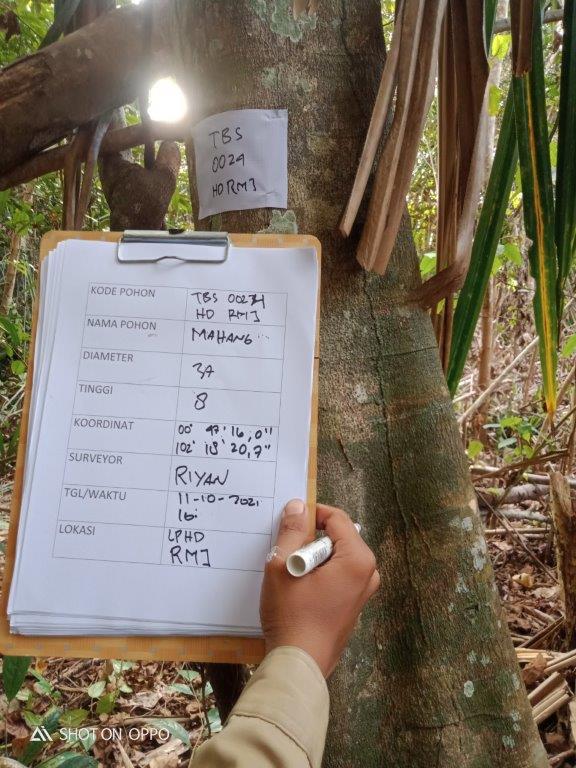 TBS
0024
HD RMJ
KODE POHON TBS 0024
HD RMJ
NAMA POHON MAHANG
DIAMETER 34
TINGGI 8
KOORDINAT 00° 47' 16,0"
102° 13' 20,7"
SURVEYOR RIYAN
TGL/WAKTU 11-10-2021
16:
LOKASI LPHD
RMJ
SHOT ON OPPO